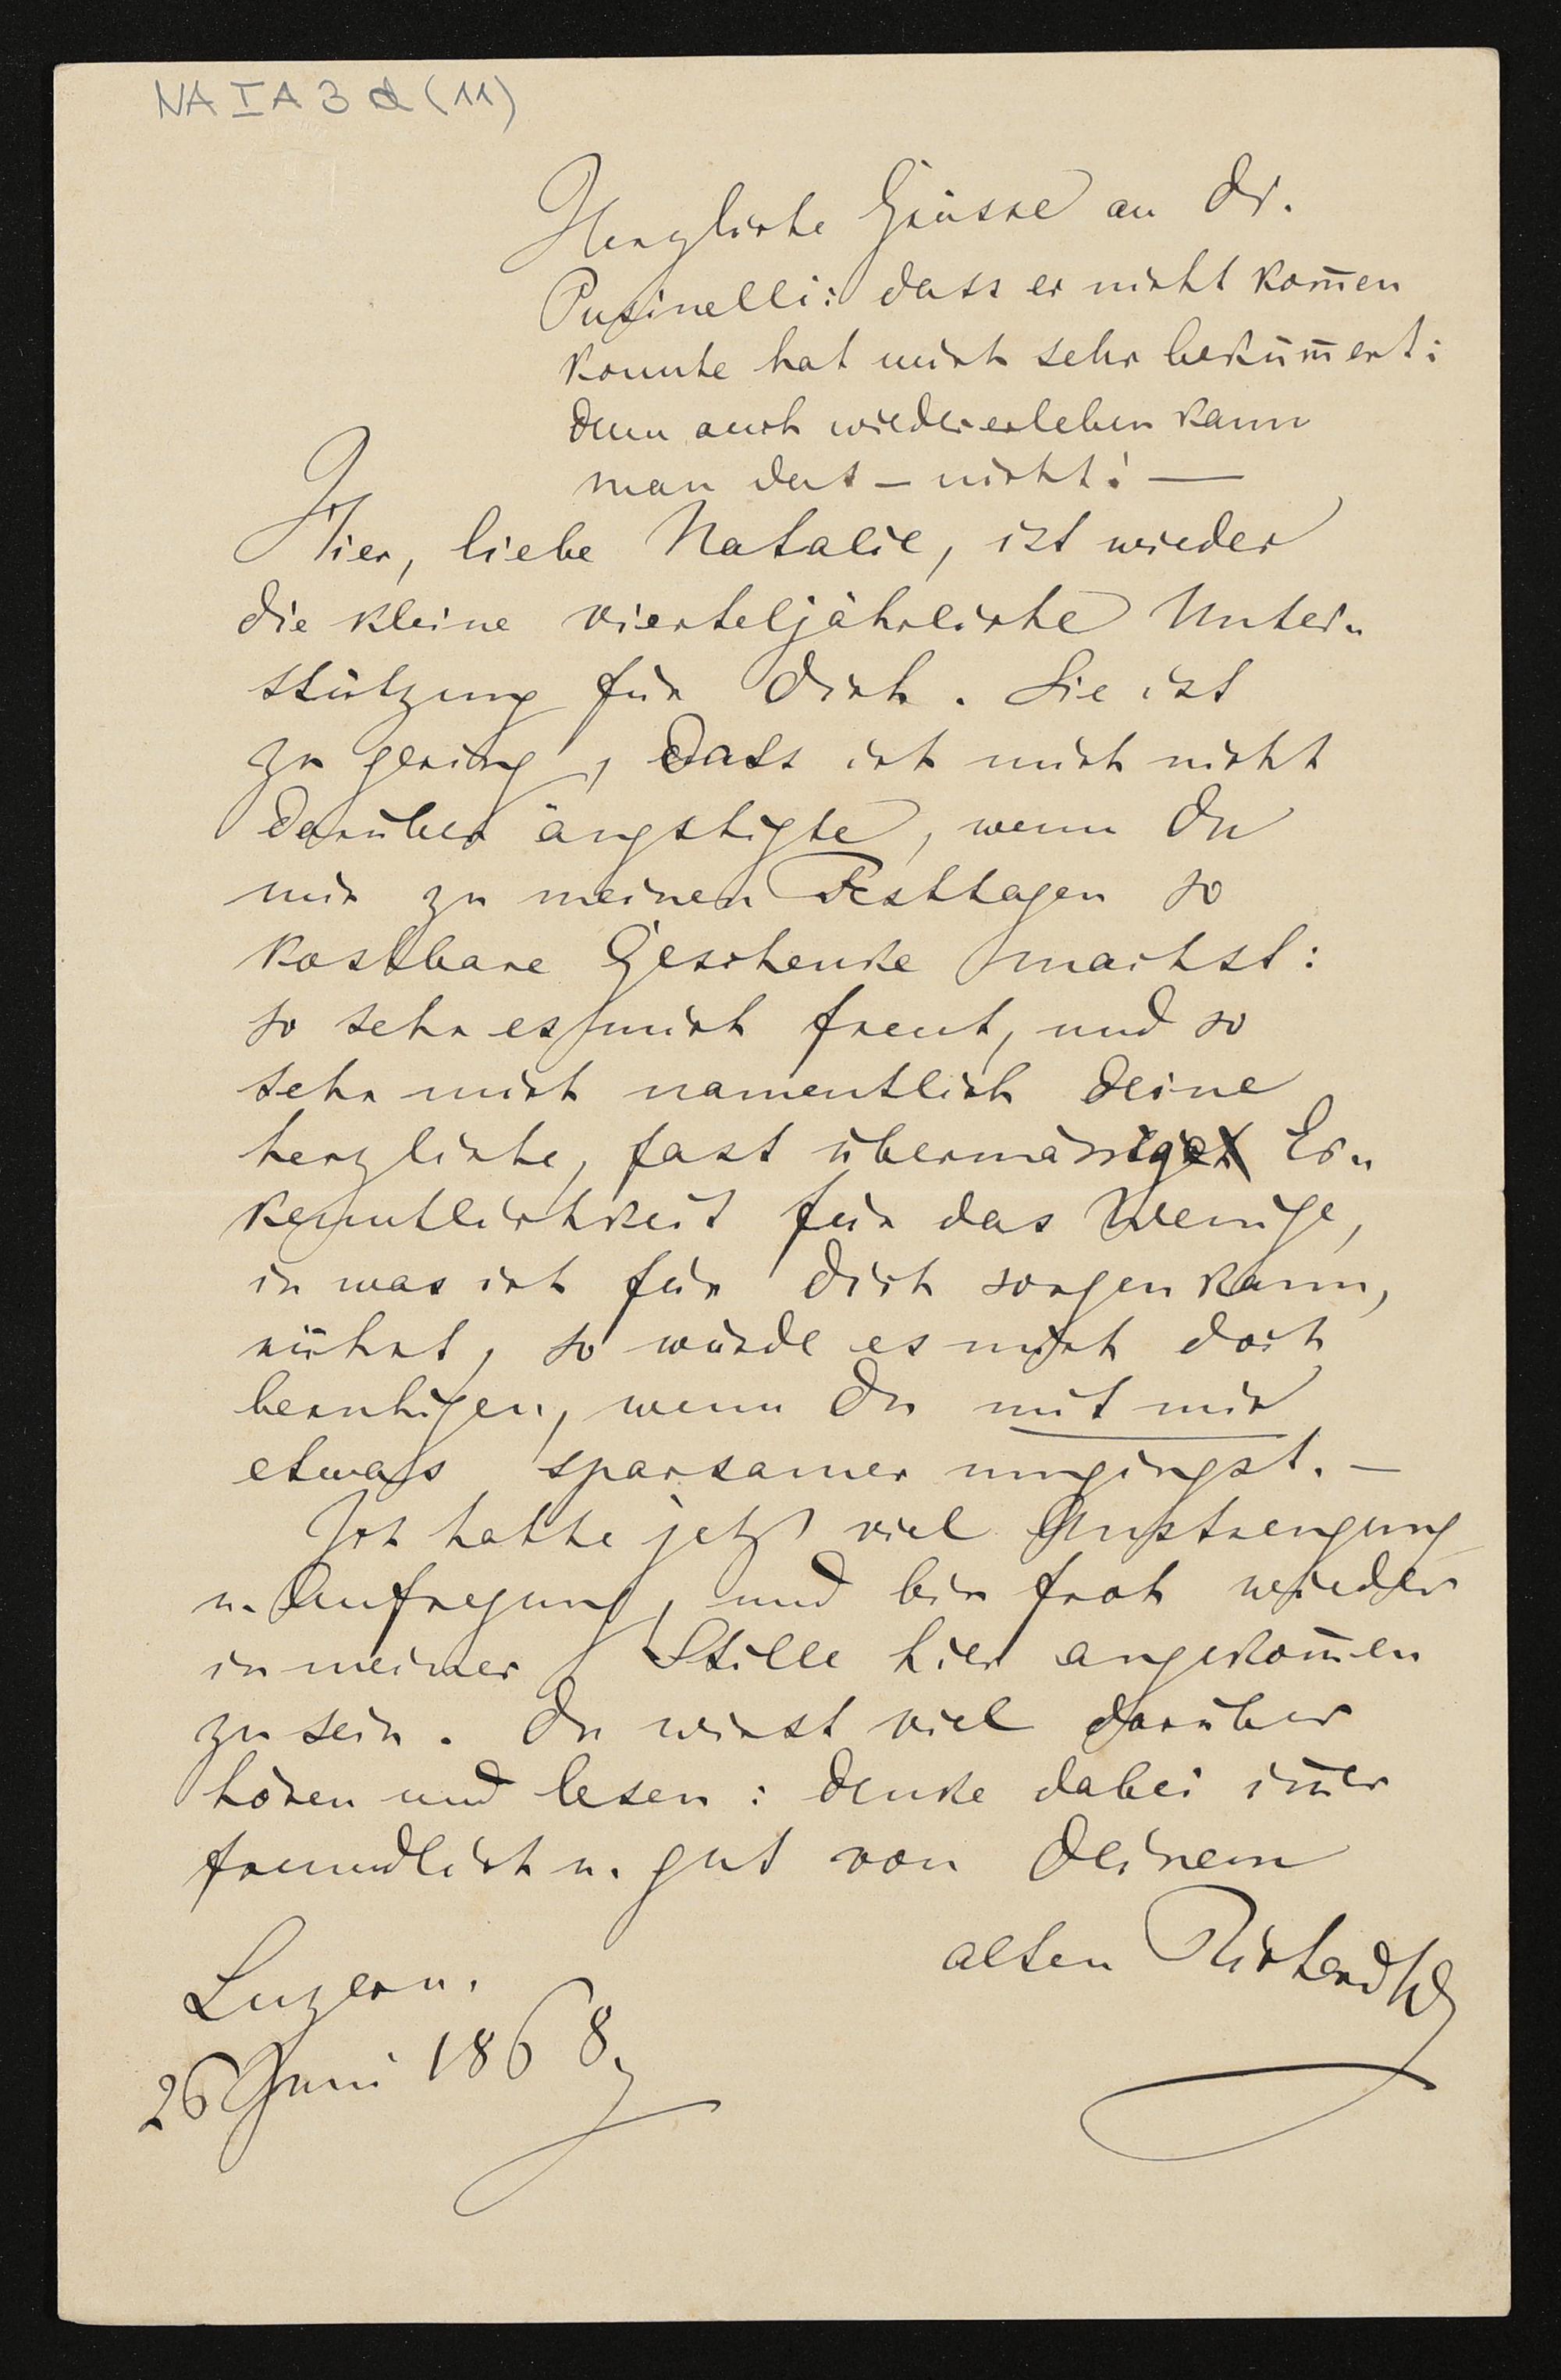 NA I A 3 d (11)
Herzliche Grüsse an Dr.
Pusinelli: dass er nicht kom̄en
konnte hat mich sehr beküm̄ert:
denn auch wiedererleben kann
man das – nicht! —
Hier, liebe Natalie, ist wieder
die kleine vierteljährliche Unter-
stützung für Dich. Sie ist
zu gering, dass ich mich nicht
darüber ängstigte, wenn Du
mir zu meinen Festtagen so
kostbare Geschenke machst:
so sehr es mich freut, und so
sehr mich namentlich Deine
herzliche, fast übermässige Er-
kenntlichkeit für das Wenige,
in was ich für Dich sorgen kann,
rührt, so würde es mich doch
beruhigen, wenn Du mit mir
etwas sparsamer umgingst. —
Ich hatte jetzt viel Anstrengung
u. Aufregung, und bin froh wieder
in meiner Stille hier angekom̄en
zu sein. Du wirst viel darüber
hören und lesen: denke dabei im̄er
freundlich u. gut von Deinem
alten RichardW
Luzern.
26 Juni 1868.